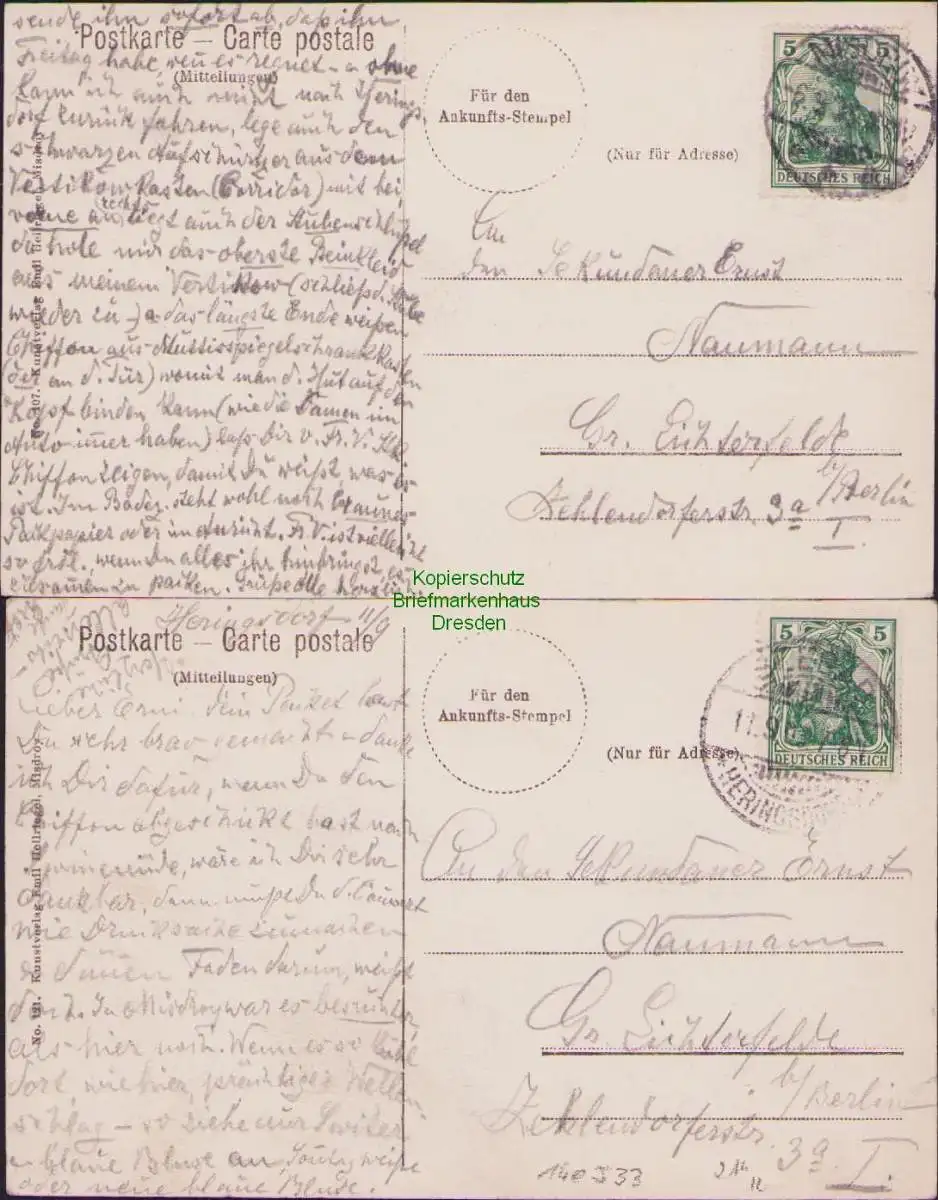 sende ihn sofort ab, daß ihn
Postkarte — Carte postale
Freitag habe, wenn es regnet – ohne
(Mitteilungen)
kann ich auch nicht nach Herings-
dorf zurück fahren, lege auch den
schwarzen Aufschürzer aus dem
Vertikowkasten (Corridor) mit bei
vorne rechts liegt auch der Stubenschlüssel
da hole mir das oberste Beinkleid
aus meinem Vertikow (schließ d. Stube
wieder zu –) das längste Ende weißen
Chiffon aus Muttis Spiegelschrankkasten
(der an d. Tür) womit man d. Hut auf den
Kopf binden kann (wie die Damen im
Auto immer haben) laß Dir v. Fr. V.
Chiffon zeigen, damit Du weißt, was es
ist. Im Badez. steht wohl noch braunes
Packpapier oder im. Fr. V. ist vielleicht
so frdl. wenn Du alles ihr hinbringst, es
zusammen zu packen. Grüße alle herzlich.
No. 107. Kunstverlag Emil Hellriegel, Misdroy
Für den
Ankunfts-Stempel
(Nur für Adresse)
5 5
DEUTSCHES REICH
An
den Sekundaner Ernst
Naumann
Gr. Lichterfelde
b/Berlin
Zehlendorferstr. 3a
I.
Kopierschutz
Briefmarkenhaus
Dresden
Heringsdorf 11/9
Postkarte — Carte postale
(Mitteilungen)
Lieber Erni, dein Packet hast
Du sehr brav gemacht – danke
ich Dir dafür, wenn Du den
Chiffon abgeschickt hast nach
Swinemünde, wäre ich Dir sehr
dankbar, denn müße Du d. Couvert
wie Drucksache zumachen
Faden darum, weißt
doch. In Misdroy war es besuchter
als hier noch. Wenn es so kühl
dort, wie hier, prächtiger Wellen-
schlag – so ziehe nur Sweter
blaue Bluse an Sonntag weiße
oder neue blaue Bluse.
No. 121. Kunstverlag Emil Hellriegel, Misdroy.
Für den
Ankunfts-Stempel
(Nur für Adresse)
5 5
DEUTSCHES REICH
11.9.
HERINGSDORF
An den Sekundaner Ernst
Naumann
Gr. Lichterfelde
b/Berlin
Zehlendorferstr. 3a I.
140 J 33